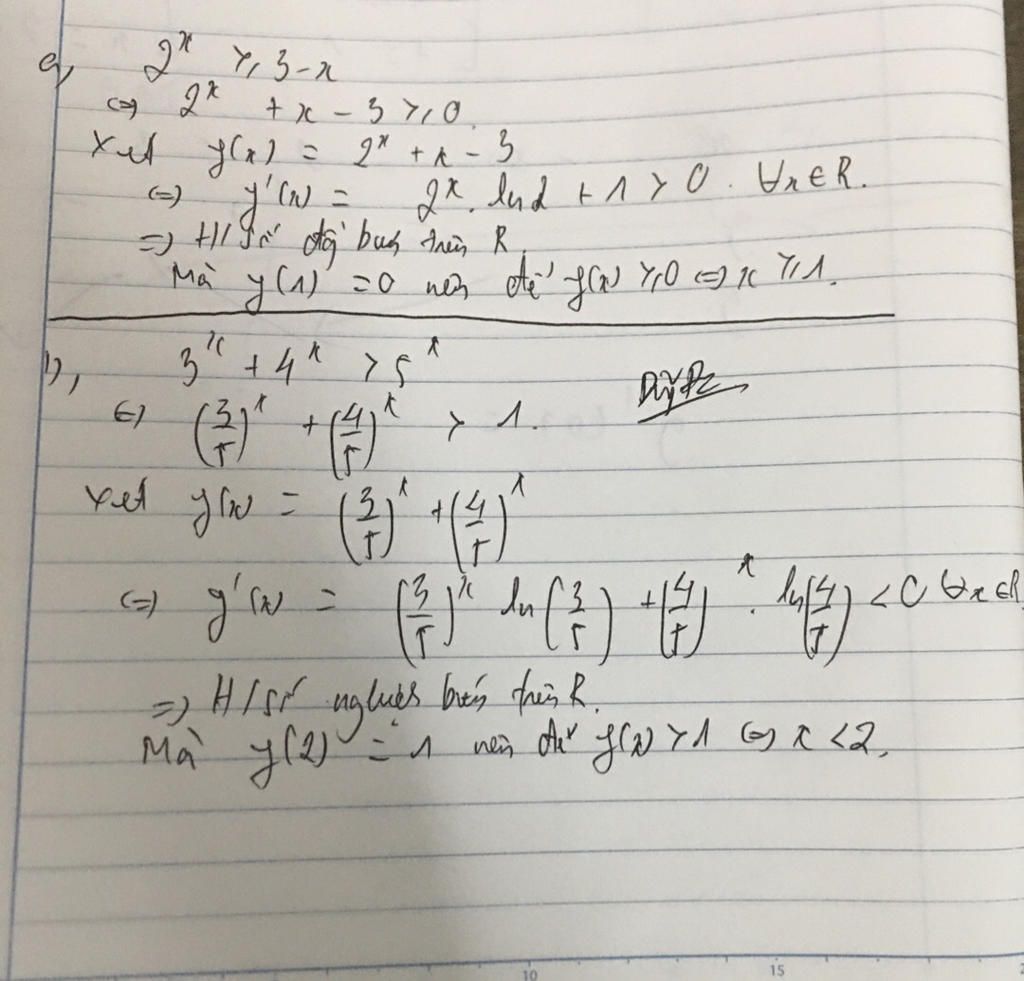 a, 2^x ≥ 3-x
⇔ 2^x + x - 3 ≥ 0.
Xét y(x) = 2^x + x - 3
⇔ y'(x) = 2^x. ln2 + 1 > 0. ∀x∈R.
⇒ H/số đồ̀ng biến trên R.
Mà y(1) = 0 nên để y(x) ≥ 0 ⇔ x ≥ 1.
b, 3^x + 4^x > 5^x
⇔ (3/5)^x + (4/5)^x > 1.
Xét y(x) = (3/5)^x + (4/5)^x
⇔ y'(x) = (3/5)^x ln(3/5) + (4/5)^x . ln(4/5) < 0 ∀x∈R
⇒ H/số nghịch biến trên R.
Mà y(2) = 1 nên để y(x) > 1 ⇔ x < 2.
10 15